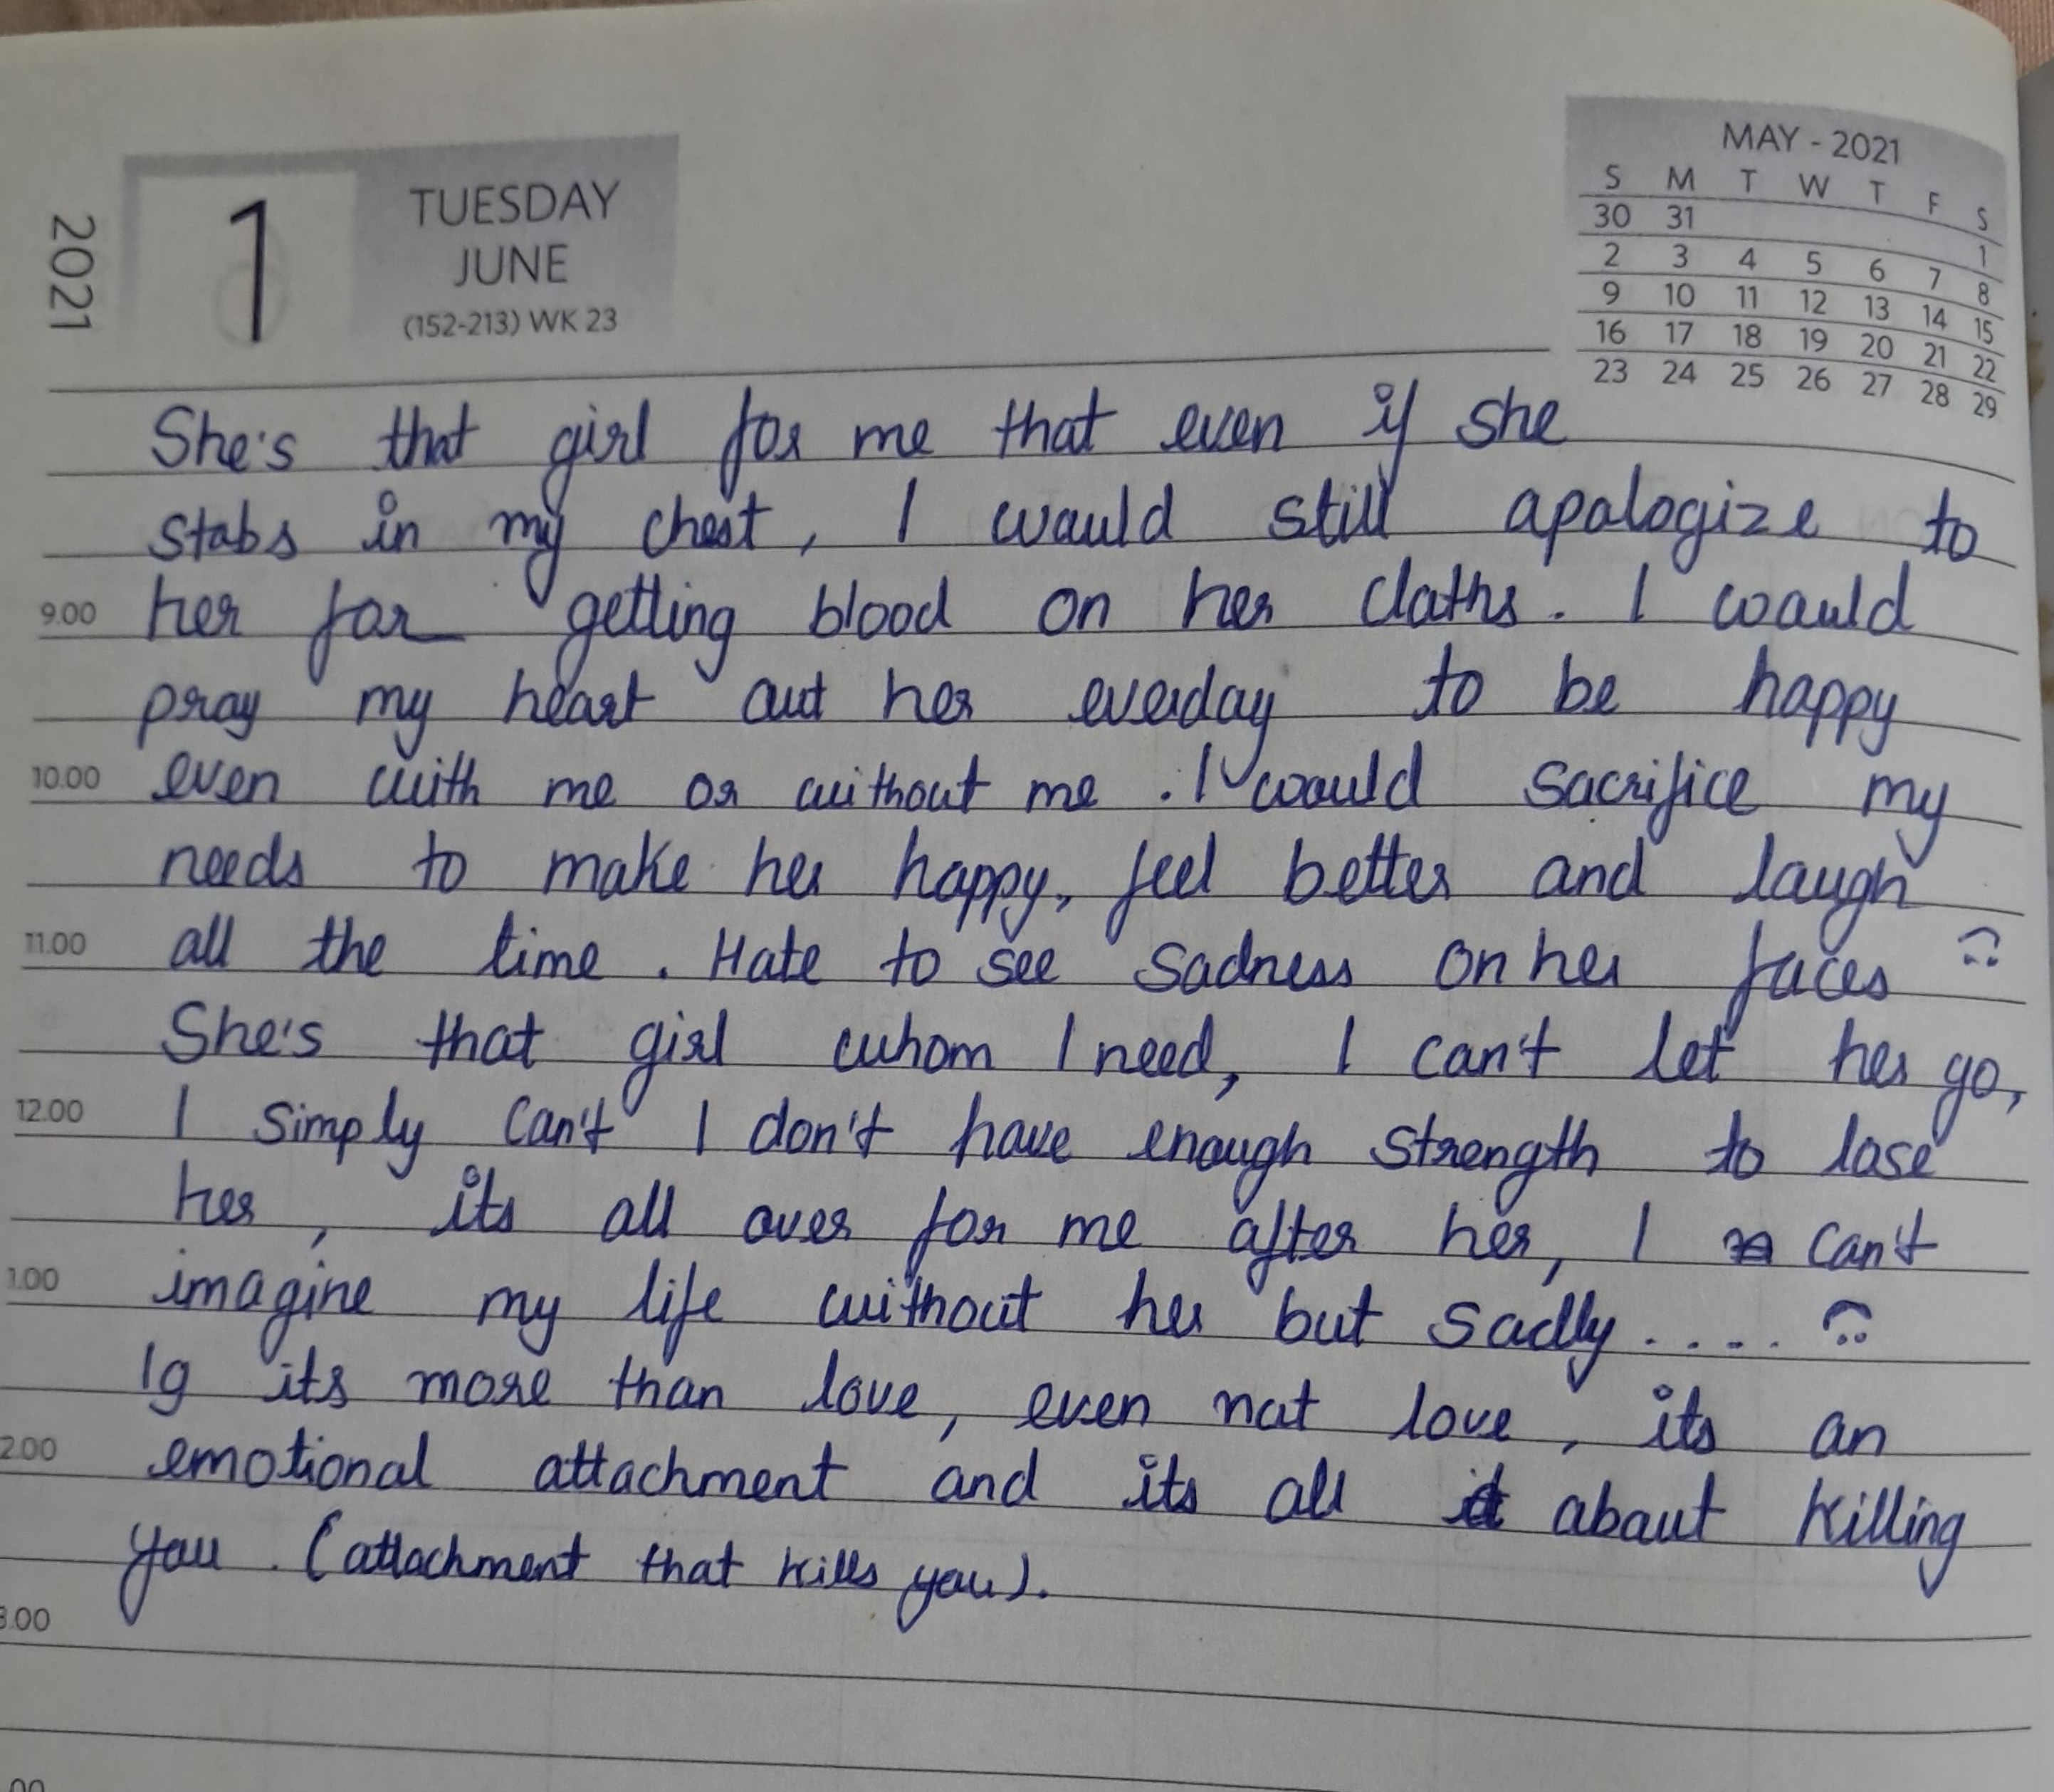 2021
1
TUESDAY
JUNE
(152-213) WK 23
MAY - 2021
S M T W T F S
30 31 1
2 3 4 5 6 7 8
9 10 11 12 13 14 15
16 17 18 19 20 21 22
23 24 25 26 27 28 29
She's that girl for me that even if she
stabs in my chest, I would still apologize to
9.00 her for getting blood on her cloths. I would
pray my heart out her everday to be happy
10.00 even with me or without me. I would sacrifice my
needs to make her happy, feel better and laugh
11.00 all the time. Hate to see sadness on her faces :(
She's that girl whom I need, I can't let her go,
12.00 I simply can't I don't have enough strength to lose
her, its all over for me after her, I can't
1.00 imagine my life without her but sadly..... :(
Ig its more than love, even not love, its an
2.00 emotional attachment and its all about killing
you. (attachment that kills you).
3.00
.00